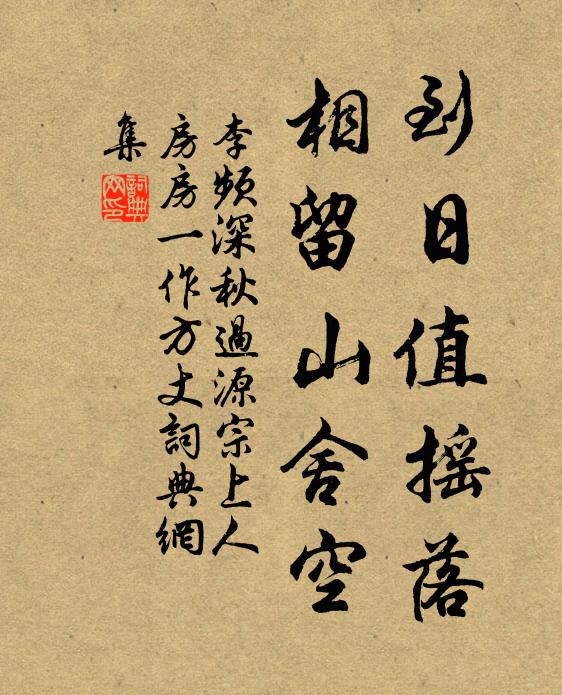 到日值摇落
相留山舍空
李頻深秋過源宗上人
房房一作方丈詞典網
集
詞典
网印